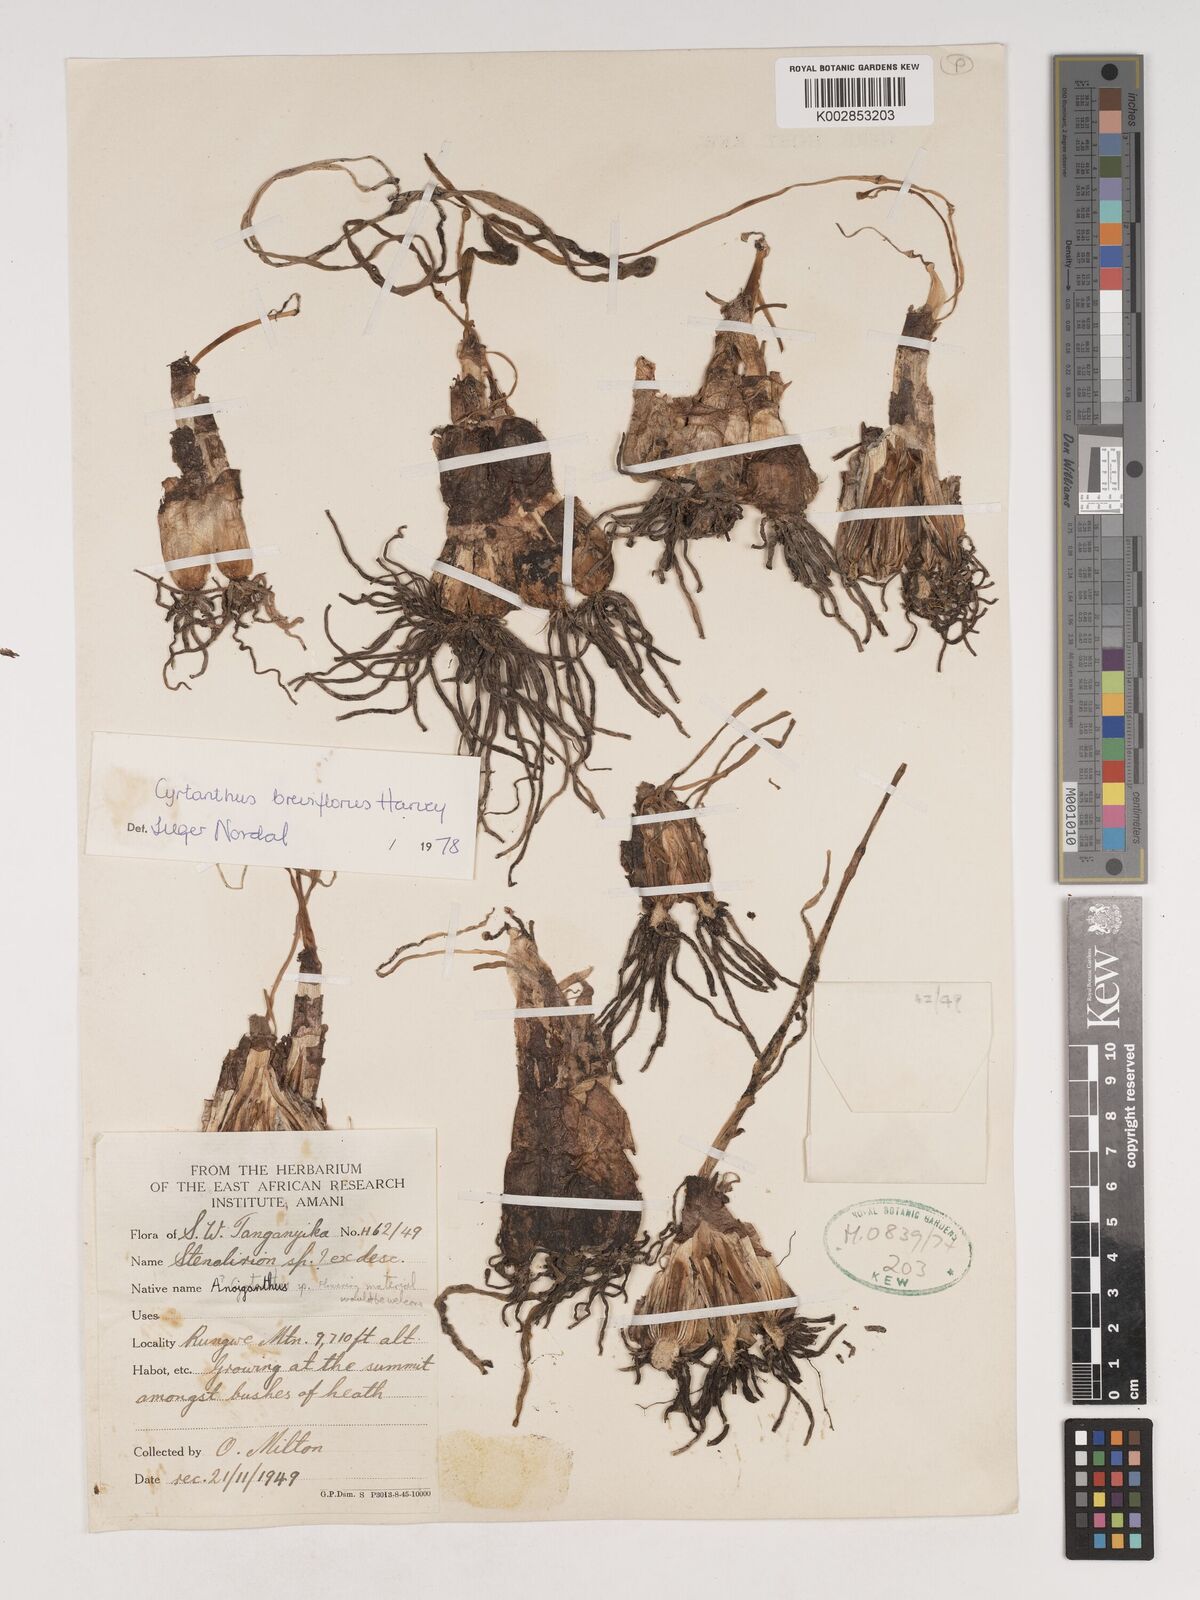 ROYAL BOTANIC GARDENS KEW
K002853203
P
Cyrtanthus breviflorus Harvey
Det. Inger Nordal / 1978
42/49
FROM THE HERBARIUM
OF THE EAST AFRICAN RESEARCH
INSTITUTE, AMANI
Flora of S.W. Tanganyika No. H62/49
Name Stenolirion sp. ? ex desc.
Native name Anoiganthus sp. material
would be
Uses
Locality Rungwe Mtn. 9,710 ft alt
Habot, etc. Growing at the summit
amongst bushes of heath
Collected by O. Milton
Date rec. 21/11/1949
G.P.Dsm. S P3013-8-45-10000
ROYAL BOTANIC GARDENS
H.0839/77
203
KEW
inches
Density
Don Williams
centimeters
M001010
Kew
Royal Botanic Gardens
copyright reserved
0 1 2 3 4 5 6 7 8 9 10
cm